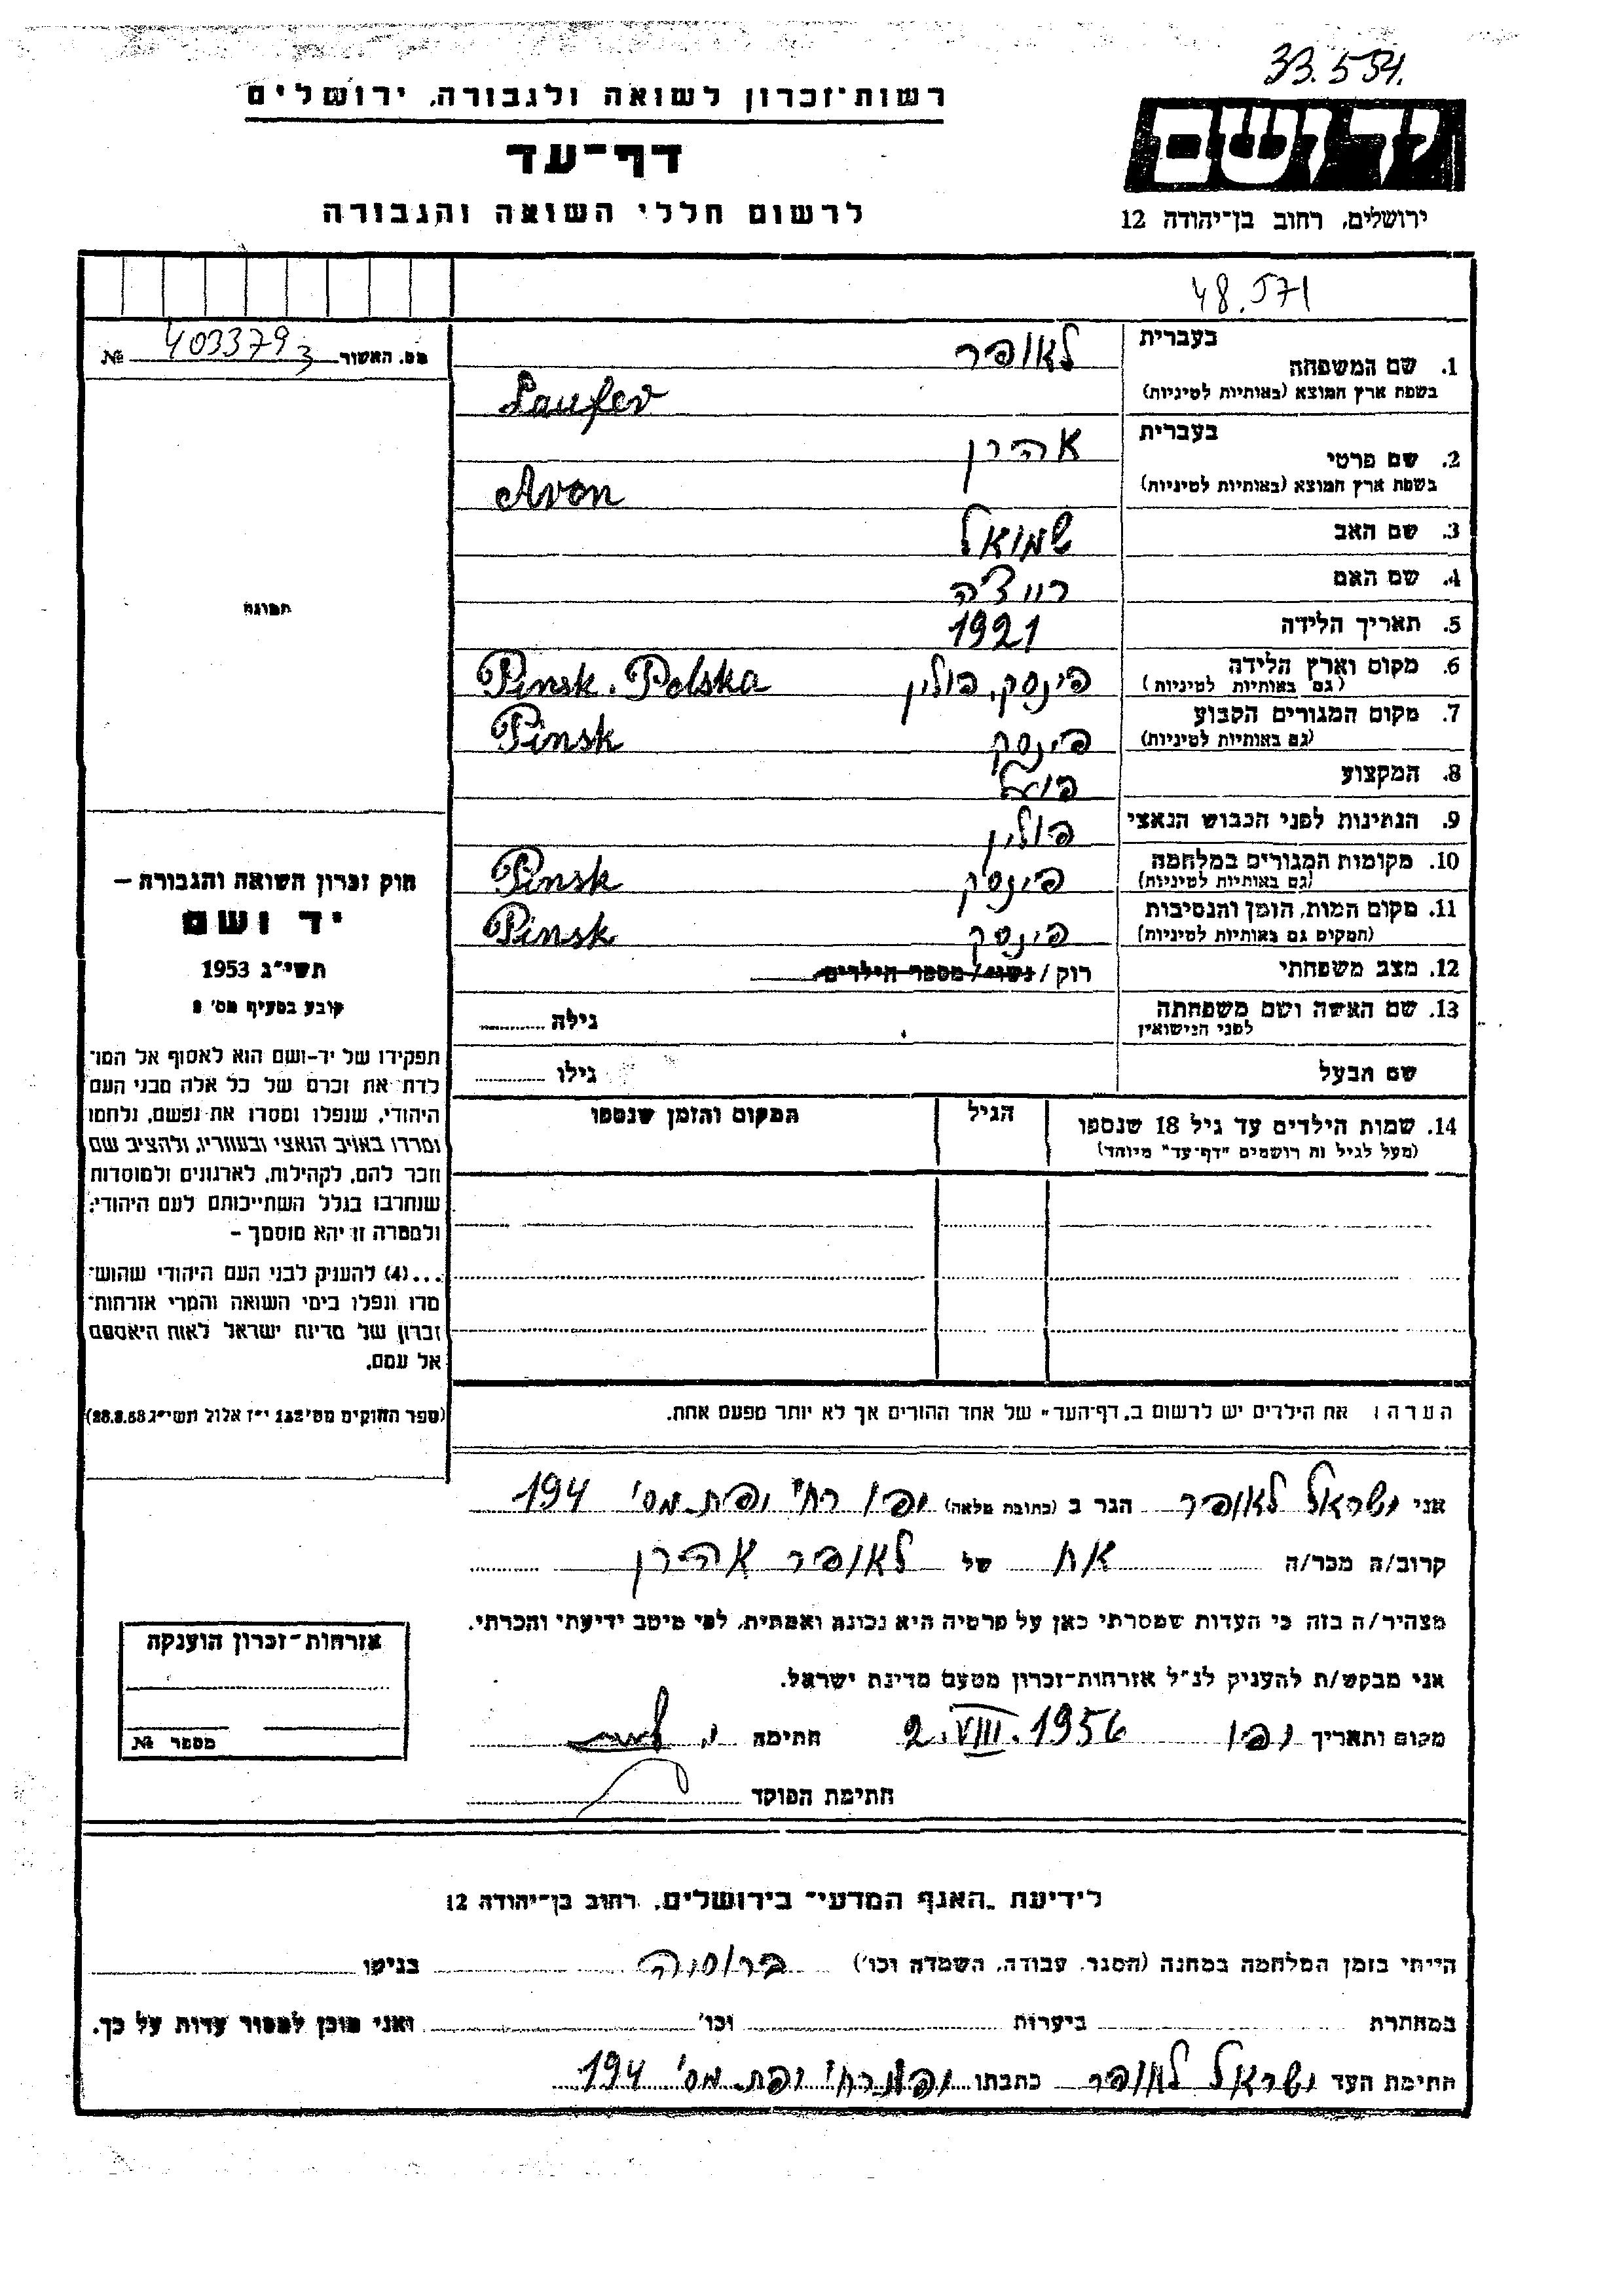 33.554.
רשות־זכרון לשואה ולגבורה, ירושלים
דף־עד
לרשום חללי השואה והגבורה
יד ושם
ירושלים, רחוב בן־יהודה 12
48.571
מס. האשור 403379 3 №
בעברית לאופר
1. שם המשפחה
בשפת ארץ המוצא (באותיות לטיניות) Laufer
בעברית אהרן
2. שם פרטי
בשפת ארץ המוצא (באותיות לטיניות) Aron
3. שם האב שמואל
4. שם האם
5. תאריך הלידה 1921
6. מקום וארץ הלידה פינסק, פולין Pinsk. Polska
(גם באותיות לטיניות)
7. מקום המגורים הקבוע פינסק Pinsk
(גם באותיות לטיניות)
8. המקצוע פועל
9. הנתינות לפני הכבוש הנאצי פולין
10. מקומות המגורים במלחמה פינסק Pinsk
(גם באותיות לטיניות)
11. מקום המות, הזמן והנסיבות פינסק Pinsk
(המקום גם באותיות לטיניות)
12. מצב משפחתי רוק / נשוי / מספר הילדים
13. שם האשה ושם משפחתה גילה
לפני הנישואין
שם הבעל גילו
14. שמות הילדים עד גיל 18 שנספו הגיל המקום והזמן שנספו
(מעל לגיל זה רושמים "דף־עד" מיוחד)
תמונה
חוק זכרון השואה והגבורה –
יד ושם
תשי"ג 1953
קובע בסעיף מס'
תפקידו של יד-ושם הוא לאסוף אל המו־
לדת את זכרם של כל אלה מבני העם
היהודי, שנפלו ומסרו את נפשם, נלחמו
ומרדו באויב הנאצי ובעוזריו, ולהציב שם
וזכר להם, לקהילות, לארגונים ולמוסדות
שנחרבו בגלל השתייכותם לעם היהודי;
ולמטרה זו יהא מוסמך –
...(4) להעניק לבני העם היהודי שהוש־
מדו ונפלו בימי השואה והמרי אזרחות־
זכרון של מדינת ישראל לאות היאספם
אל עמם.
(ספר החוקים מס' 132 י"ז אלול תשי"ג 28.8.53)
הערה: את הילדים יש לרשום ב„דף־העד" של אחד ההורים אך לא יותר מפעם אחת.
אני ישראל לאופר הגר ב (כתובת מלאה) יפו רח' יפת מס' 194
קרוב/ה מכר/ה אח של לאופר אהרן
מצהיר/ה בזה כי העדות שמסרתי כאן על פרטיה היא נכונה ואמתית, לפי מיטב ידיעתי והכרתי.
אני מבקש/ת להעניק לנ"ל אזרחות־זכרון מטעם מדינת ישראל.
מקום ותאריך יפו 2.VIII.1956 חתימה
חתימת הפוקד
אזרחות־זכרון הוענקה
מספר №
לידיעת „האגף המדעי" בירושלים, רחוב בן־יהודה 12
הייתי בזמן המלחמה במחנה (הסגר, עבודה, השמדה וכו') ברוסיה בגיטו
במחתרת ביערות וכו' ואני מוכן למסור עדות על כך.
חתימת העד ישראל לאופר כתבתו יפו רח' יפת מס' 194